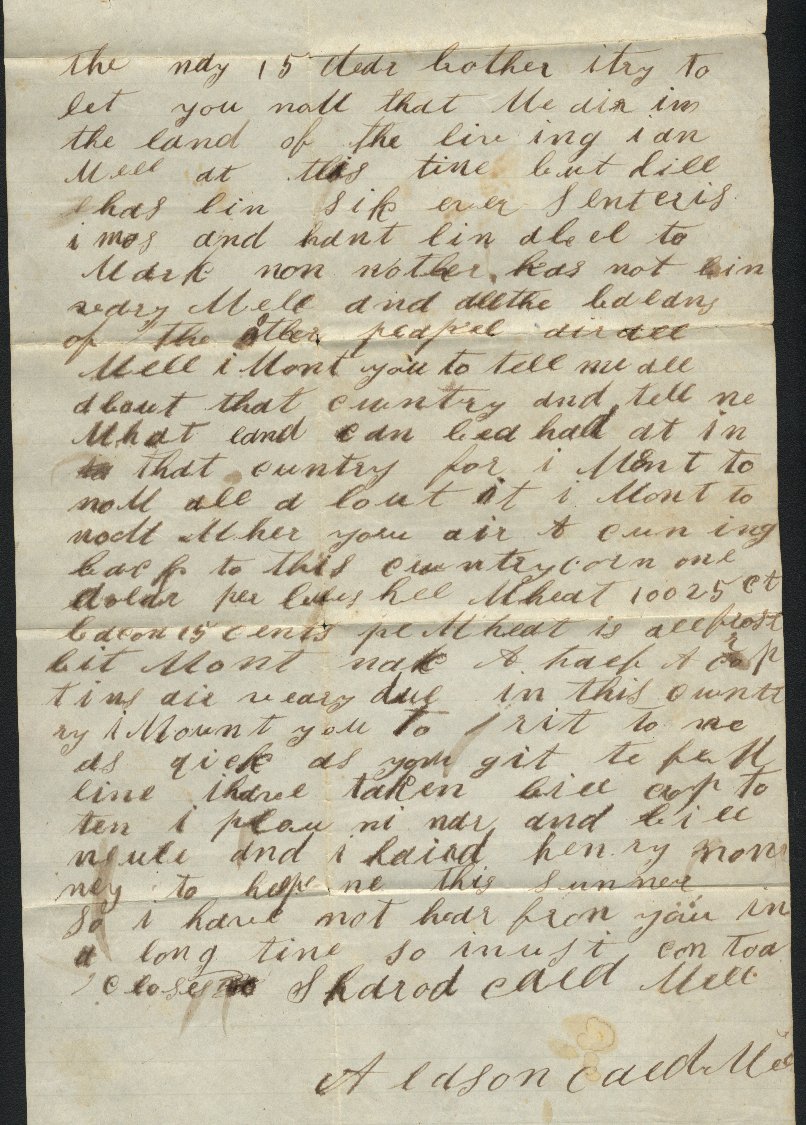 the may 15 dear bother i try to
let you naw that We air in
the land of the live ing i am
Well at this time but Bill
has bin Sik ever Sentcris
i mos and hant bin abel to
Wark non nother has not bin
veary Well and all the balans
of the other peapel air all
Well i Wont you to tell me all
about that cuntry and tell me
What land can bea had at in
that cuntry for i Wont to
naW all a bout it i Wont to
noW When you air A cuming
back to this cuntry corn one
dolar per bus hel Wheat 100 25 ct
bacon 15 cents pe Wheat is all frost
bit Wont mak A half A crop
tims air veary dul in this cuntt
ry i Wount you to rit to me
as qick as you git te feW
line i have taken bill crop to
ten i plow mi mar and bill
meule and i haird henry mon
ney to help me this Summer
So i have not hear from you in
a long time so i must con too a
close Sharod caldWell
A ladson caldWell